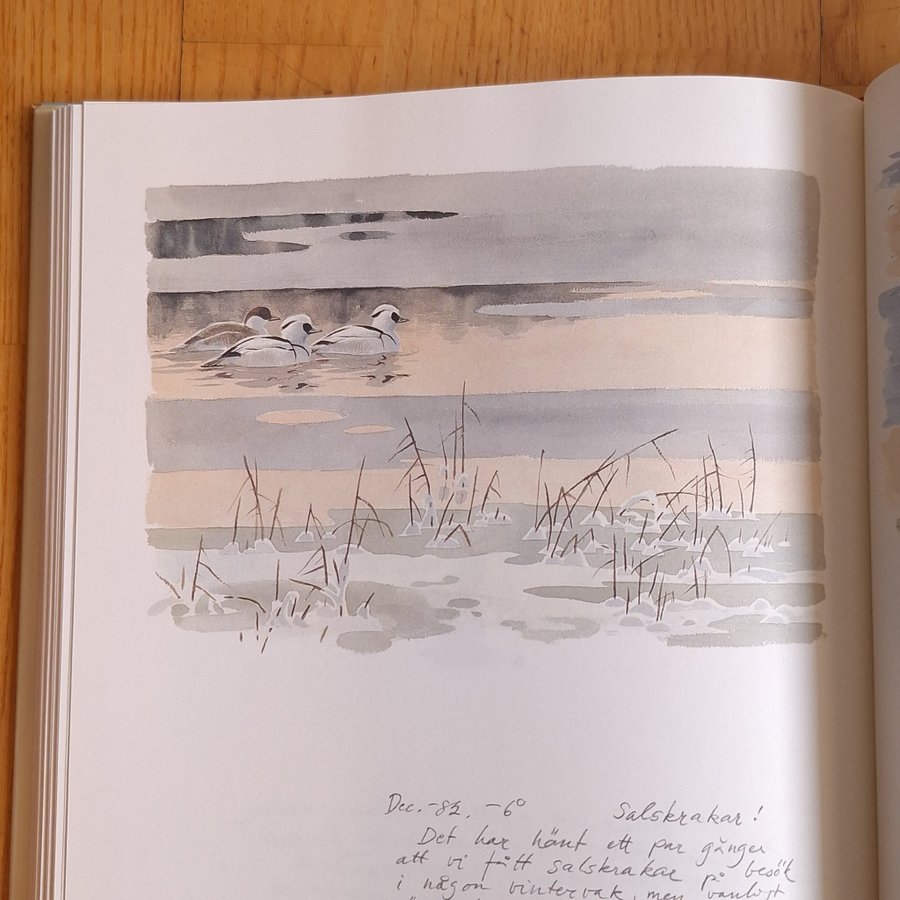 Dec. -82, -6° Salskrakar!
Det har hänt ett par gånger
att vi fått salskrakar på besök
i någon vintervak, men vanligt